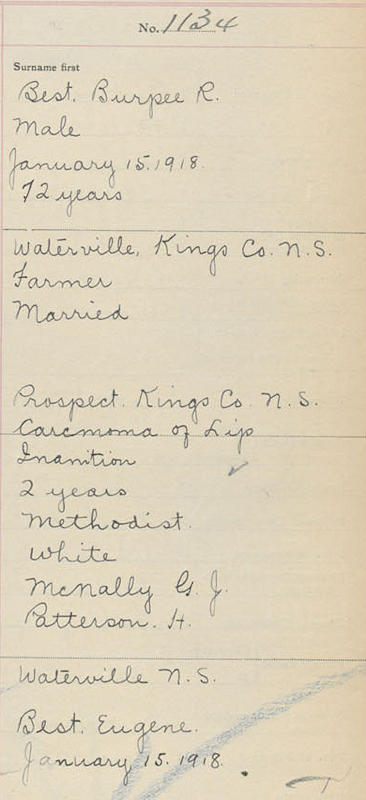 No. 1134
Surname first
Best. Burpee R.
Male
January 15. 1918.
72 years
Waterville, Kings Co. N.S.
Farmer
Married
Prospect. Kings Co. N.S.
Carcmoma of Lip
Inanition
2 years
Methodist.
White
McNally G. J.
Patterson. H.
Waterville N.S.
Best. Eugene.
January 15. 1918.